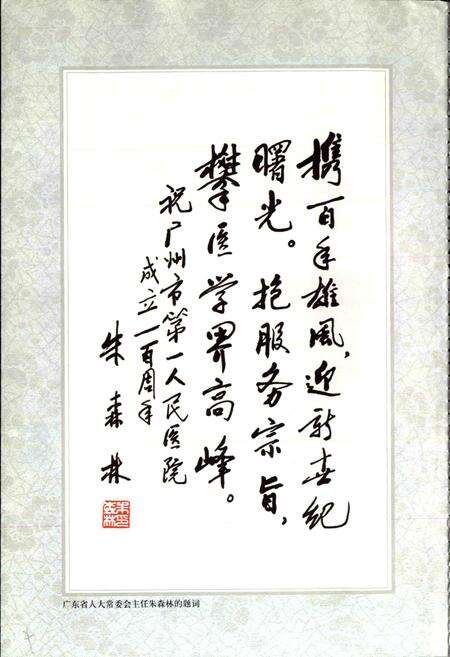 携百年雄风，迎新世纪
曙光。抱服务宗旨，
攀医学界高峰。
祝广州市第一人民医院
成立一百周年
朱森林
广东省人大常委会主任朱森林的题词